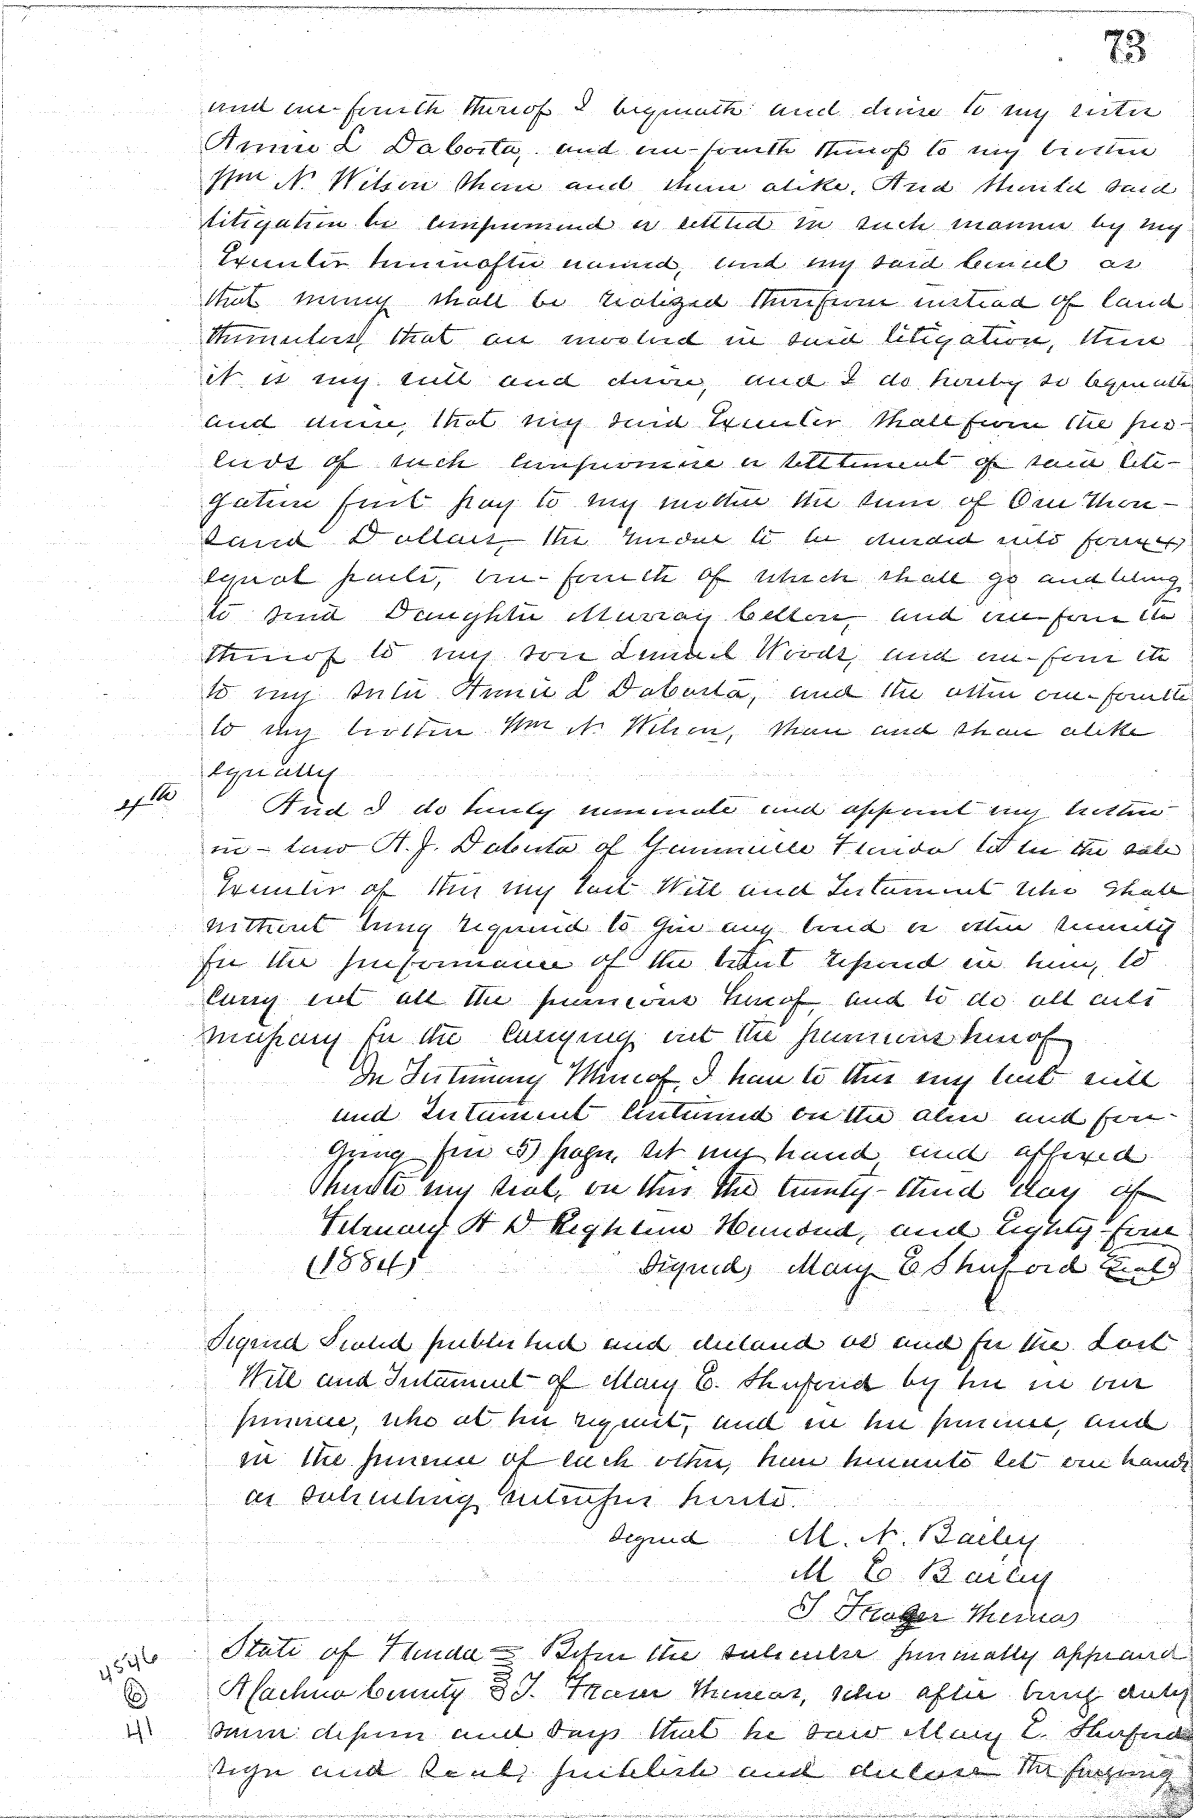 73
and one-fourth thereof I bequeath and devise to my sister
Annie L DaCosta, and one-fourth thereof to my brother
Wm N. Wilson share and share alike. And should said
litigation be compromised or settled in such manner by my
Executor hereinafter named, and my said Counsel as
that money shall be realized therefrom instead of land
themselves, that are involved in said litigation, then
it is my will and desire, and I do hereby so bequeath
and devise, that my said Executor shall from the pro-
ceeds of such compromise or settlement of said liti-
gation first pay to my mother the sum of One Thou-
sand Dollars, the residue to be divided into four (4)
equal parts, one-fourth of which shall go and belong
to said Daughter Murray Cellon, and one-fourth
thereof to my son Lemuel Woods, and one-fourth
to my sister Annie L DaCosta, and the other one-fourth
to my brother Wm N. Wilson, share and share alike
equally
4th And I do hereby nominate and appoint my brother-
in-law A. J. DaCosta of Gainesville Florida to be the sole
Executor of this my last Will and Testament who shall
without being required to give any bond or other security
for the performance of the trust reposed in him, to
carry out all the provisions hereof, and to do all acts
necessary for the carrying out the provisions hereof
In Testimony Whereof, I have to this my last will
and Testament contained on the above and fore-
going five (5) pages, set my hand and affixed
hereto my seal, on this the twenty-third day of
February A D Eighteen Hundred, and Eighty-four
(1884) Signed, Mary E Shuford (Seal)
Signed Sealed published and declared as and for the Last
Will and Testament of Mary E. Shuford by her in our
presence, who at her request, and in her presence, and
in the presence of each other, have hereunto set our hands
as subscribing witnesses hereto.
Signed M. N. Bailey
M E Bailey
T Fraser Thomas
4546
6
41
State of Florida } Before the subscriber personally appeared
Alachua County } T. Fraser Thomas, who after being duly
sworn deposes and says that he saw Mary E. Shuford
sign and seal, publish and declare the foregoing